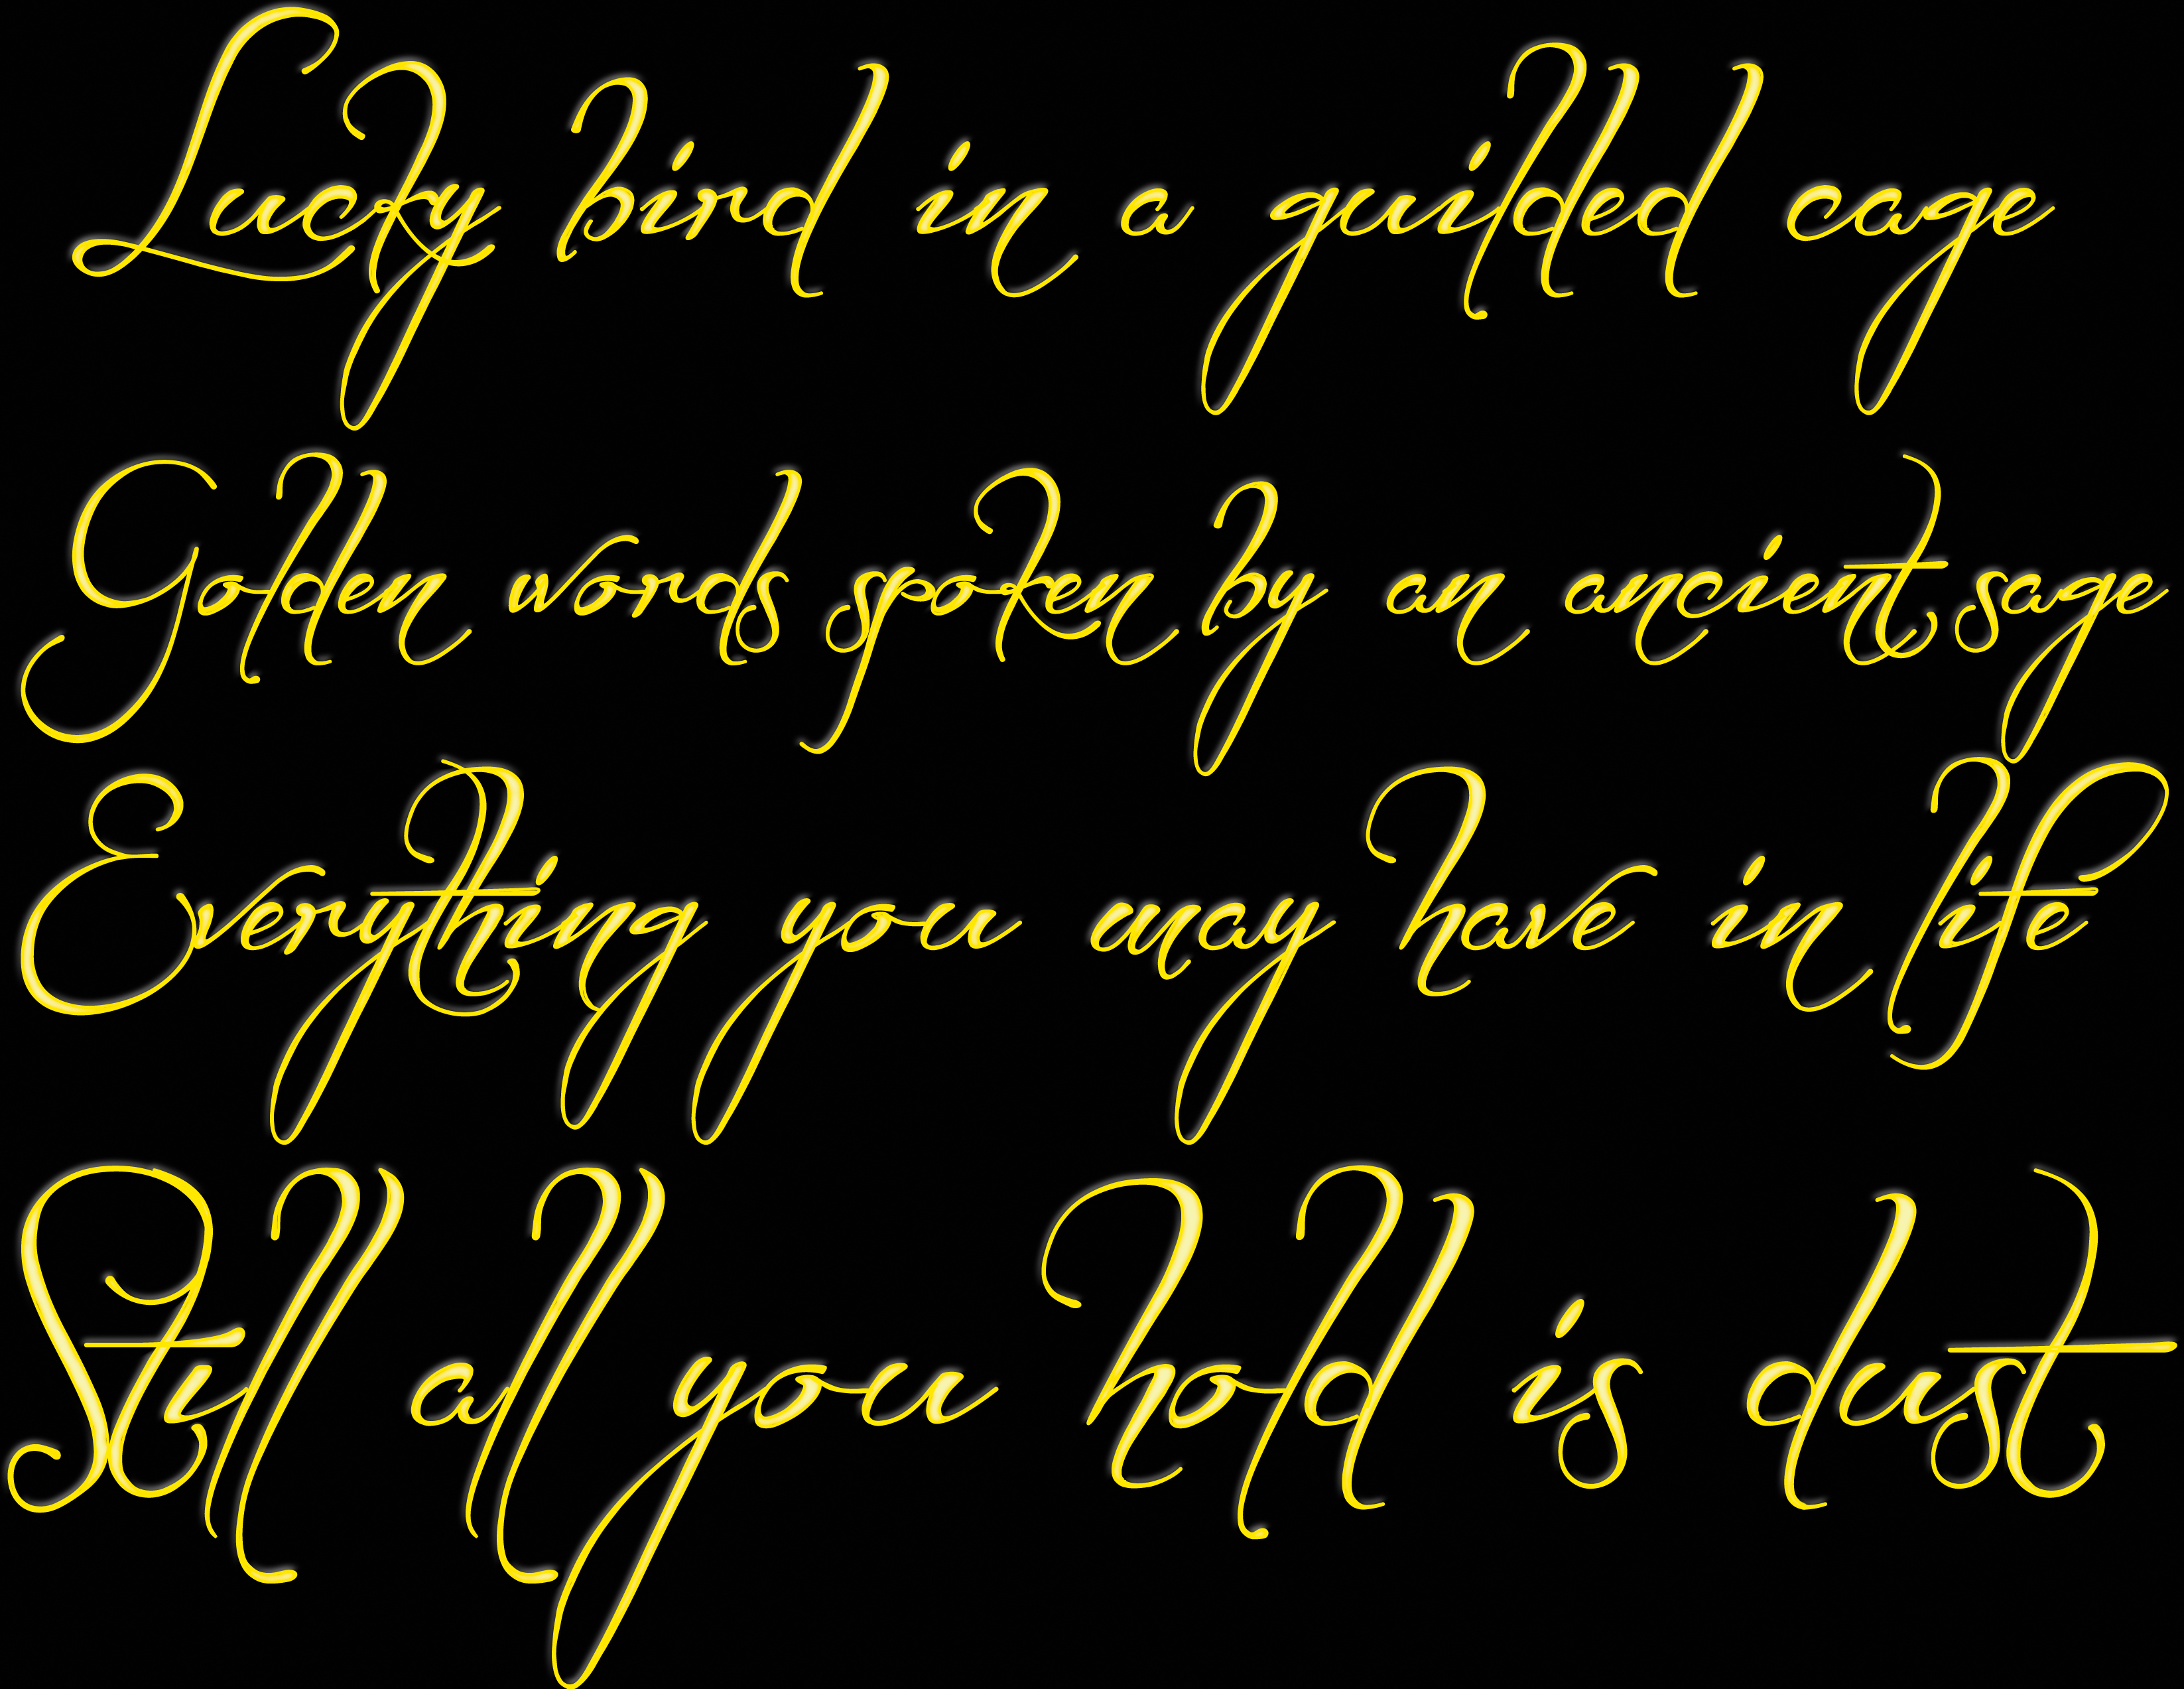 Lucky bird in a guilded cage
Golden words spoken by an ancient sage
Everything you may have in life
Still all you hold is dust